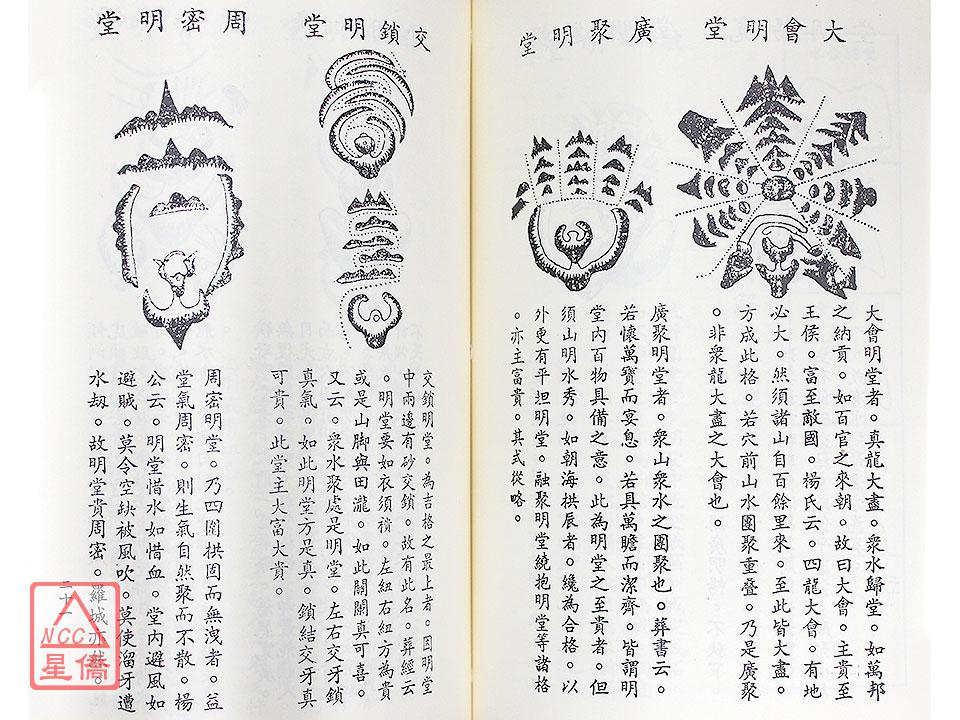 大會明堂
大會明堂者。真龍大盡。衆水歸堂。如萬邦
之納貢。如百官之來朝。故曰大會。主貴至
王侯。富至敵國。楊氏云。四龍大會。有地
必大。然須諸山自百餘里來。至此皆大盡。
方成此格。若穴前山水團聚重疊。乃是廣聚
。非衆龍大盡之大會也。
廣聚明堂
廣聚明堂者。衆山衆水之團聚也。葬書云。
若懷萬寶而宴息。若具萬瞻而潔齊。皆謂明
堂內百物具備之意。此為明堂之至貴者。但
須山明水秀。如朝海拱辰者。纔為合格。以
外更有平坦明堂。融聚明堂繞抱明堂等諸格
。亦主富貴。其式從略。
交鎖明堂
交鎖明堂。為吉格之最上者。因明堂
中兩邊有砂交鎖。故有此名。葬經云
。明堂要如衣須襟。左紐右紐方為貴
或是山脚與田瀧。如此關闌真可喜。
又云。衆水聚處是明堂。左右交牙鎖
真氣。如此明堂方是真。鎖結交牙真
可貴。此堂主大富大貴。
周密明堂
周密明堂。乃四圍拱固而無洩者。益
堂氣周密。則生氣自然聚而不散。楊
公云。明堂惜水如惜血。堂內避風如
避賊。莫令空缺被風吹。莫使溜牙遭
水刼。故明堂貴周密。羅城亦然。
二十一
NCC
星僑